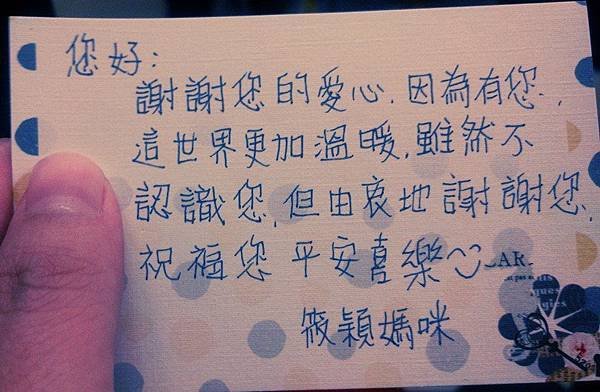 您好:
謝謝您的愛心.因為有您.,
這世界更加溫暖.雖然不
認識您,但由衷地謝謝您,
祝福您 平安喜樂
AR
筱穎媽咪